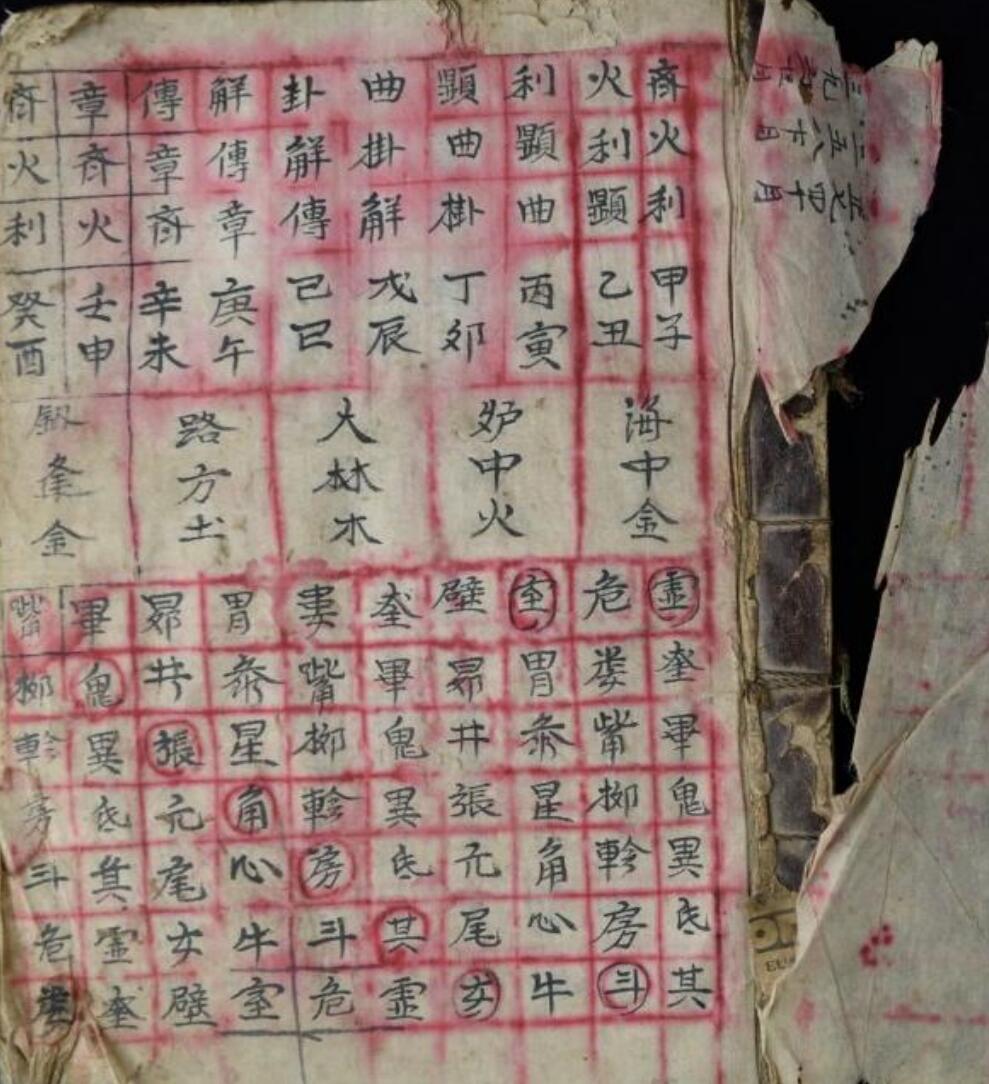 二五八十月
斉火利甲子
火利顕乙丑
利顕曲丙寅
顕曲掛丁卯
曲掛解戊辰
卦解傳己巳
解傳章庚午
傳章斉辛未
章斉火壬申
斉火利癸酉
海中金
炉中火
大林木
路方土
釼夆金
霊奎畢鬼異氐其
危娄觜柳軫房斗
室胃参星角心牛
壁昴井張亢尾女
奎畢鬼異氐其霊
娄觜柳軫房斗危
胃参星角心牛室
昴井張亢尾女壁
畢鬼異氐箕霊奎
觜柳軫房斗危娄